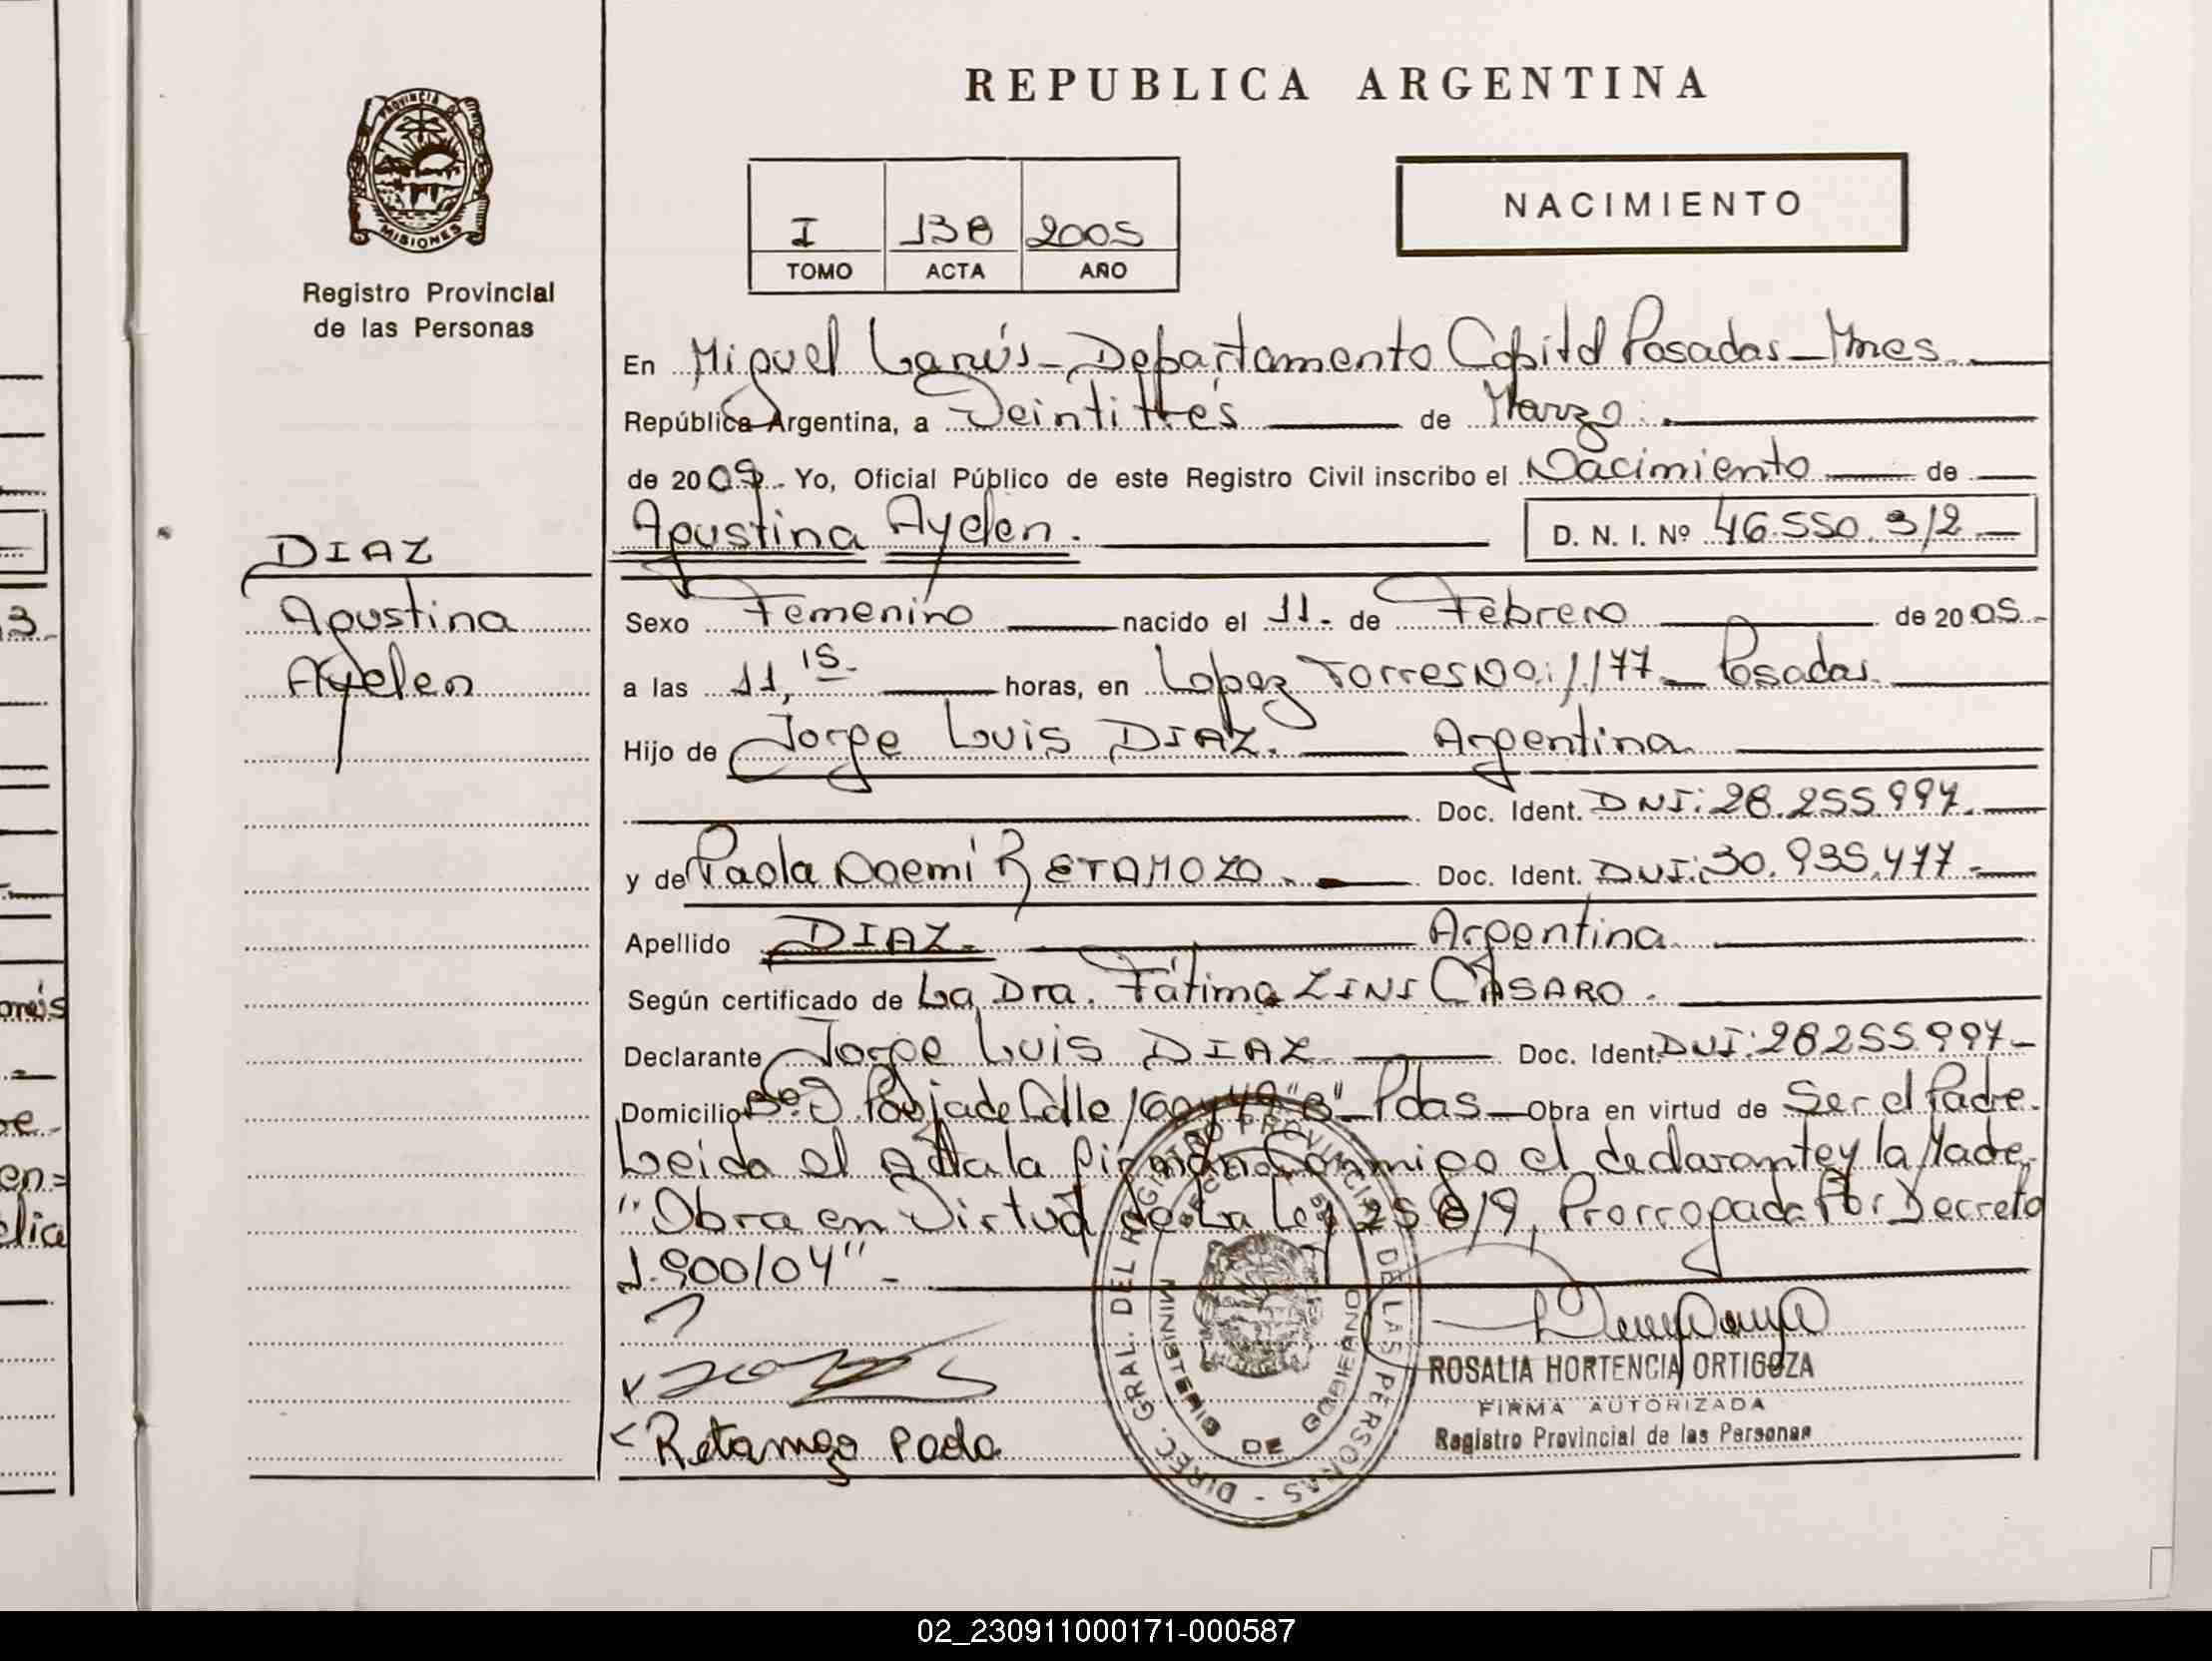 REPUBLICA ARGENTINA
PROVINCIA DE MISIONES
Registro Provincial
de las Personas
NACIMIENTO
I 138 2005
TOMO ACTA AÑO
En Miguel Lanús - Departamento Capital Posadas - Mnes.
República Argentina, a Veintitrés de Marzo.
de 2005. Yo, Oficial Público de este Registro Civil inscribo el Nacimiento de
Agustina Ayelen. D. N. I. Nº 46.550.312
DIAZ
Agustina
Ayelen
Sexo Femenino nacido el 11. de Febrero de 2005.
a las 11,15. horas, en Lopez Torres No: 1177 - Posadas.
Hijo de Jorge Luis DIAZ. Argentina.
Doc. Ident. DNI: 28.255.997.
y de Paola Noemí RETAMOZO. Doc. Ident. DNI: 30.935.477.-
Apellido DIAZ. Argentina
Según certificado de La Dra. Fátima ZINI CASARO.
Declarante Jorge Luis DIAZ. Doc. Ident. DNI: 28255.997-
Domicilio Bº Calle 160 y 49 "B" - Pdas - Obra en virtud de Ser el Padre.
Leida el Acta la firman Conmigo el declarante y la Madre.
"Obra en Virtud de La Ley 25819, Prorrogada Por Decreto
1.900/04".-
DIREC. GRAL. DEL REGISTRO PROVINCIAL DE LAS PERSONAS
MINISTERIO DE GOBIERNO
ROSALIA HORTENCIA ORTIGOZA
FIRMA AUTORIZADA
Registro Provincial de las Personas
Retamozo Paola
02_230911000171-000587